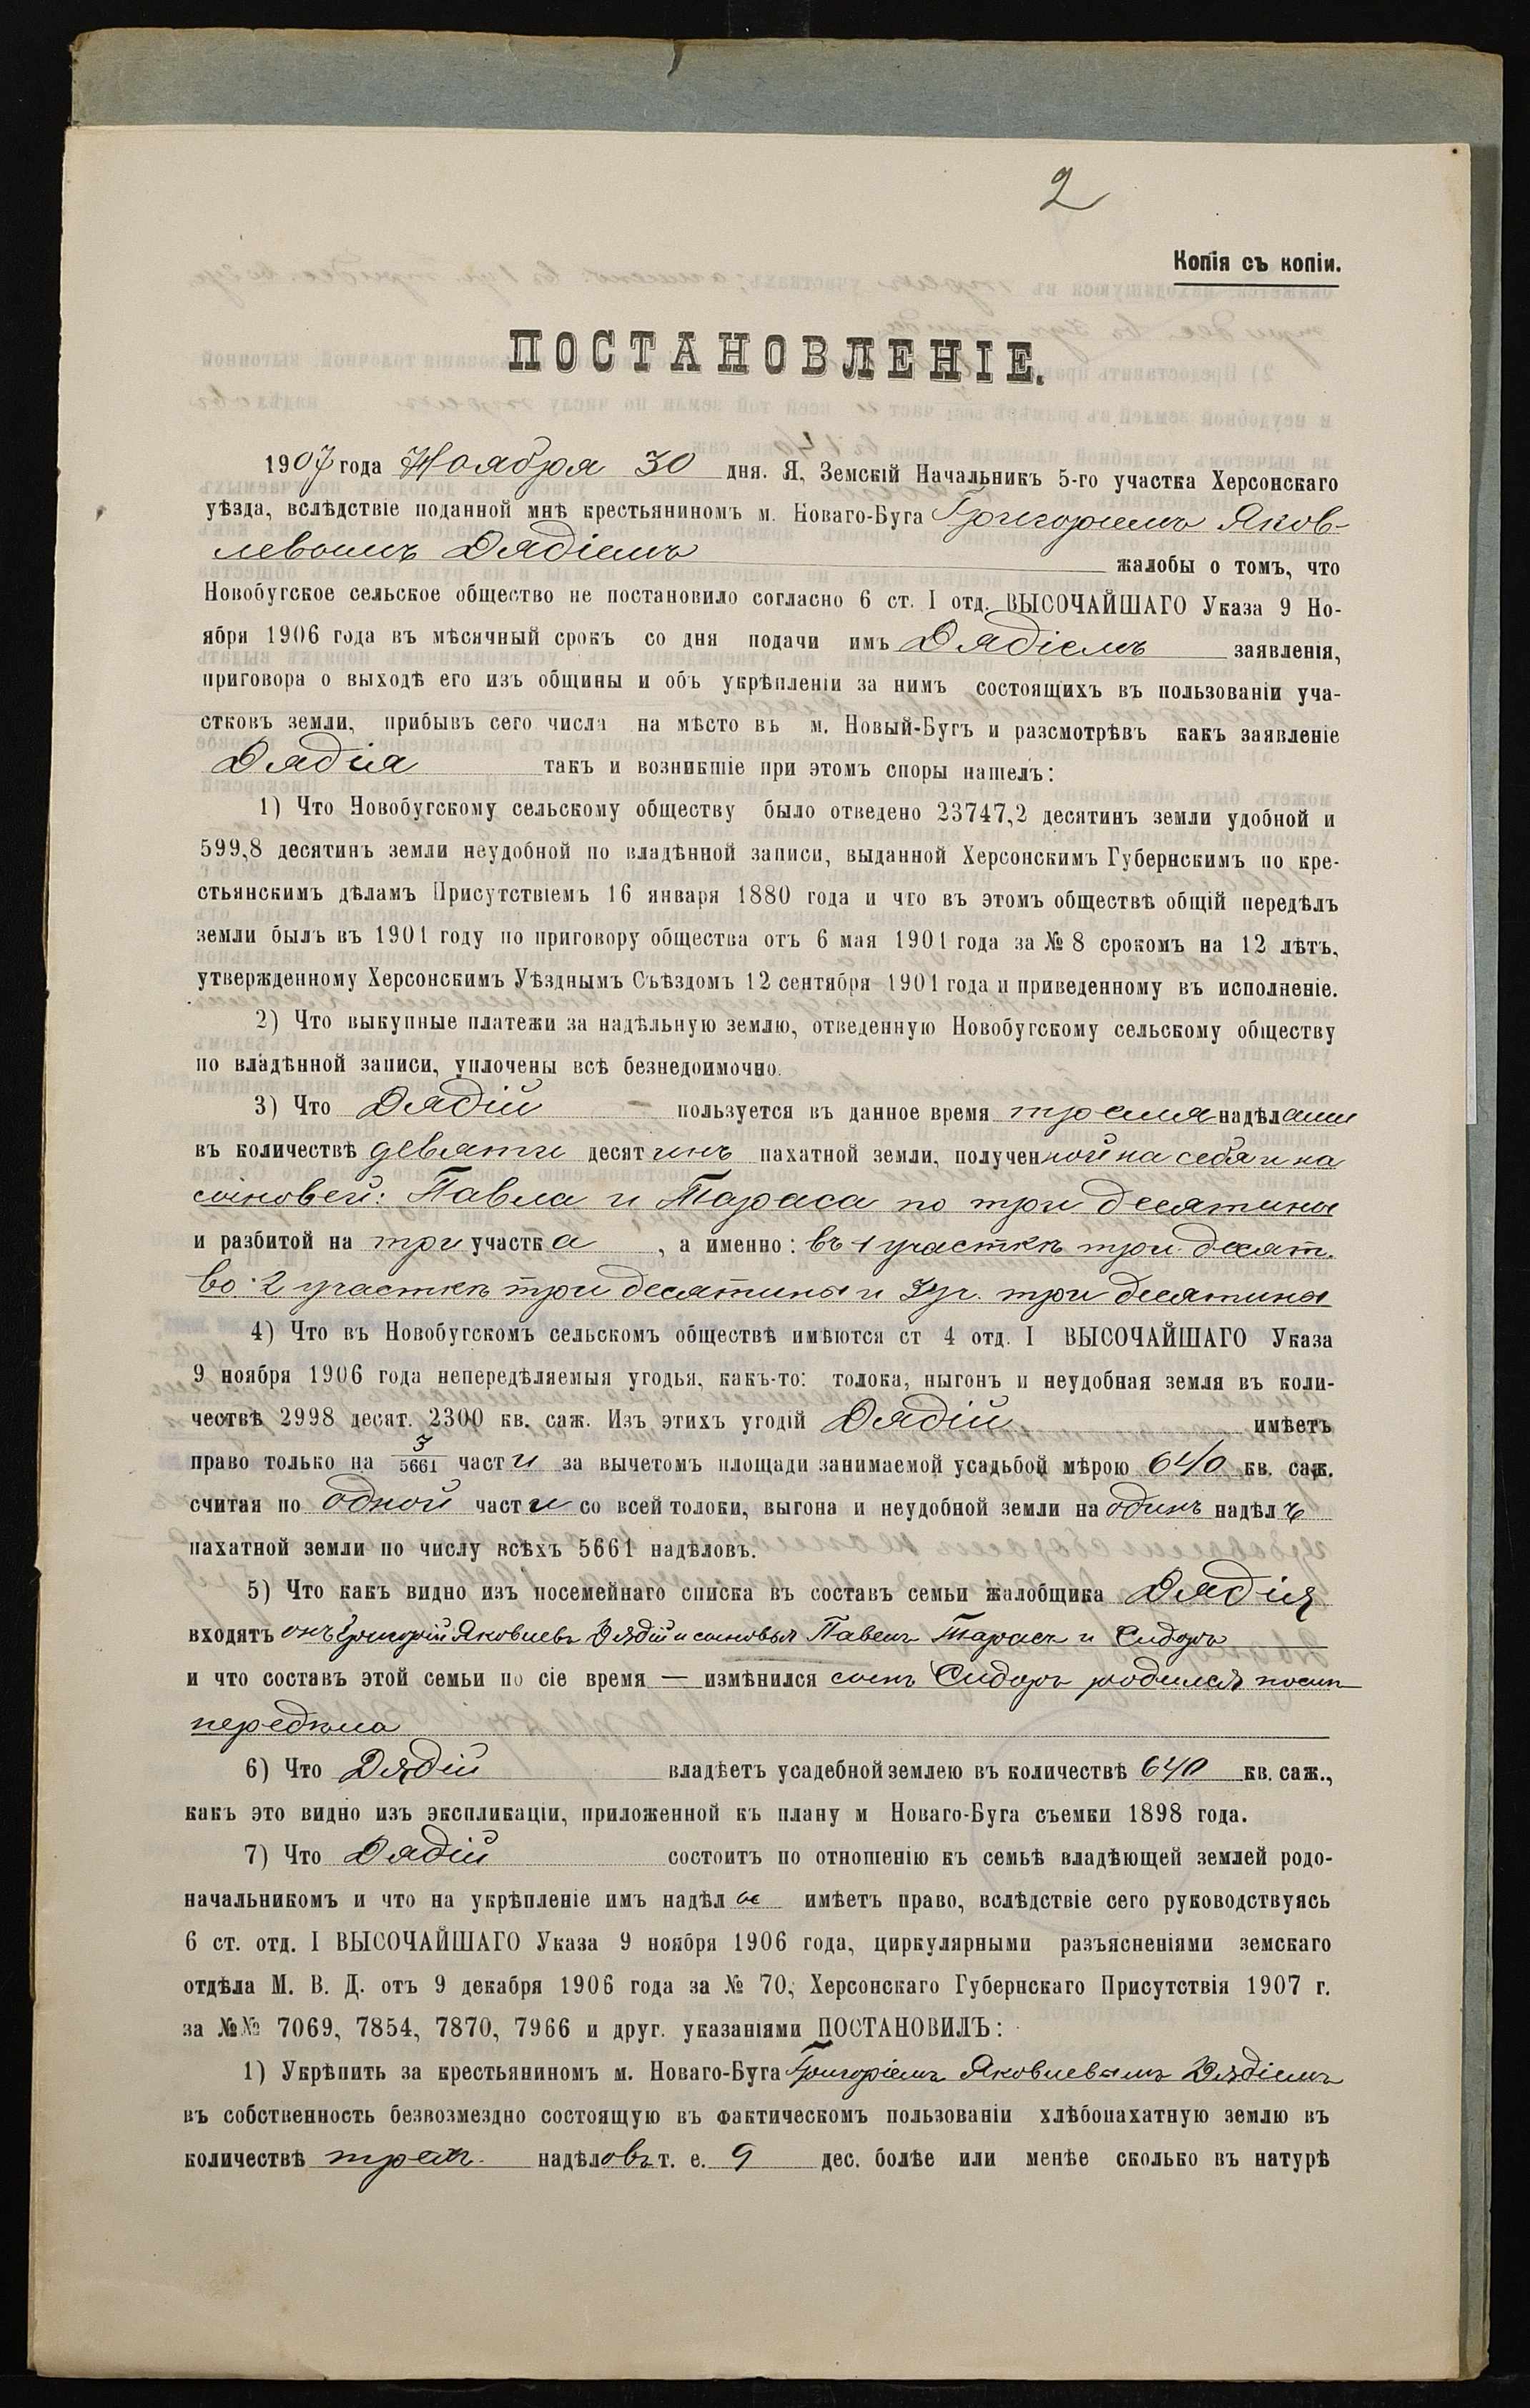 2
Копія съ копіи.
ПОСТАНОВЛЕНІЕ.
1907 года Ноября 30 дня. Я, Земскій Начальникъ 5-го участка Херсонскаго
уѣзда, вслѣдствіе поданной мнѣ крестьяниномъ м. Новаго-Буга Григоріемъ Яков-
левымъ Дядіемъ жалобы о томъ, что
Новобугское сельское общество не постановило согласно 6 ст. I отд. ВЫСОЧАЙШАГО Указа 9 Но-
ября 1906 года въ мѣсячный срокъ со дня подачи имъ Дядіемъ заявленія,
приговора о выходѣ его изъ общины и объ укрѣпленіи за нимъ состоящихъ въ пользованіи уча-
стковъ земли, прибывъ сего числа на мѣсто въ м. Новый-Бугъ и разсмотрѣвъ какъ заявленіе
Дядія такъ и возникшіе при этомъ споры нашелъ:
1) Что Новобугскому сельскому обществу было отведено 23747,2 десятинъ земли удобной и
599,8 десятинъ земли неудобной по владѣнной записи, выданной Херсонскимъ Губернскимъ по кре-
стьянскимъ дѣламъ Присутствіемъ 16 января 1880 года и что въ этомъ обществѣ общій передѣлъ
земли былъ въ 1901 году по приговору общества отъ 6 мая 1901 года за № 8 срокомъ на 12 лѣтъ,
утвержденному Херсонскимъ Уѣзднымъ Съѣздомъ 12 сентября 1901 года и приведенному въ исполненіе.
2) Что выкупные платежи за надѣльную землю, отведенную Новобугскому сельскому обществу
по владѣнной записи, уплочены всѣ безнедоимочно.
3) Что Дядій – пользуется въ данное время тремя надѣлами
въ количествѣ девяти десятинъ пахатной земли, полученной на себя и на
сыновей: Павла и Тараса по три десятины
и разбитой на три участка, а именно: въ 1 участкѣ три десят.
во 2 участкѣ три десятины и 3 уч. три десятины
4) Что въ Новобугскомъ сельскомъ обществѣ имѣются ст 4 отд. I ВЫСОЧАЙШАГО Указа
9 ноября 1906 года непередѣляемыя угодья, какъ-то: толока, выгонъ и неудобная земля въ коли-
чествѣ 2998 десят. 2300 кв. саж. Изъ этихъ угодій Дядій имѣетъ
право только на 3/5661 части за вычетомъ площади занимаемой усадьбой мѣрою 640 кв. саж.
считая по одной части со всей толоки, выгона и неудобной земли на одинъ надѣлъ
пахатной земли по числу всѣхъ 5661 надѣловъ.
5) Что какъ видно изъ посемейнаго списка въ составъ семьи жалобщика Дядія
входятъ онъ Григорій Яковлевъ Дядій и сыновья Павелъ Тарасъ и Сидоръ
и что составъ этой семьи по сіе время — измѣнился сынъ Сидоръ родился послѣ
передѣла
6) Что Дядій владѣетъ усадебной землею въ количествѣ 640 кв. саж.,
какъ это видно изъ экспликаціи, приложенной къ плану м Новаго-Буга съемки 1898 года.
7) Что Дядій состоитъ по отношенію къ семьѣ владѣющей землей родо-
начальникомъ и что на укрѣпленіе имъ надѣла имѣетъ право, вслѣдствіе сего руководствуясь
6 ст. отд. I ВЫСОЧАЙШАГО Указа 9 ноября 1906 года, циркулярными разъясненіями земскаго
отдѣла М. В. Д. отъ 9 декабря 1906 года за № 70, Херсонскаго Губернскаго Присутствія 1907 г.
за №№ 7069, 7854, 7870, 7966 и друг. указаніями ПОСТАНОВИЛЪ:
1) Укрѣпить за крестьяниномъ м. Новаго-Буга Григоріемъ Яковлевымъ Дядіемъ
въ собственность безвозмездно состоящую въ фактическомъ пользованіи хлѣбопахатную землю въ
количествѣ трехъ надѣловъ т. е. 9 дес. болѣе или менѣе сколько въ натурѣ